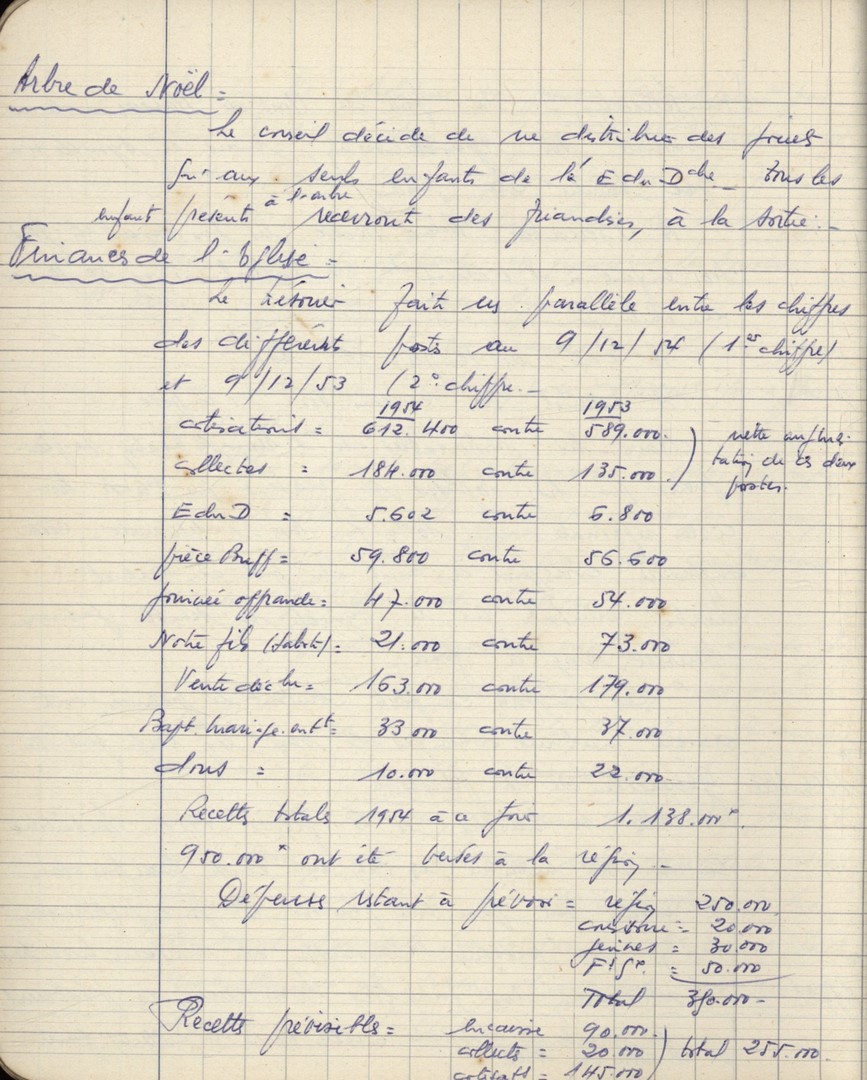 Arbre de Noël =
Le conseil décide de ne distribuer des jouets
qu'aux seuls enfants de l'E du Dche _ tous les
enfants présents à l'arbre recevront des friandises, à la sortie. _
Finances de l'Eglise =
Le trésorier fait un parallèle entre les chiffres
des différents posts au 9/12/54 (1er chiffre)
et 9/12/53 (2e chiffre. _
1954 1953
cotisations = 612.400 contre 589.000.
collectes = 184.000 contre 135.000.
) nette augmentation de ces deux postes.
E du D = 5.602 contre 6.800
pièce Buff = 59.800 contre 56.600
journée offrande = 47.000 contre 54.000
Notre fils = 21.000 contre 73.000
Vente déc = 163.000 contre 179.000
Bapt. mariage. entt = 33000 contre 37.000
dons = 10.000 contre 22.000
Recettes totales 1954 à ce jour 1.138.000
950.000 ont été versés à la région _
Dépenses restant à prévoir = région 250.000
20.000
jeunes = 30000
= 50.000
Total 350.000 -
Recettes prévisibles = en caisse 90.000.
collects = 20.000 ) total 255.000.
cotisatt = 145.000